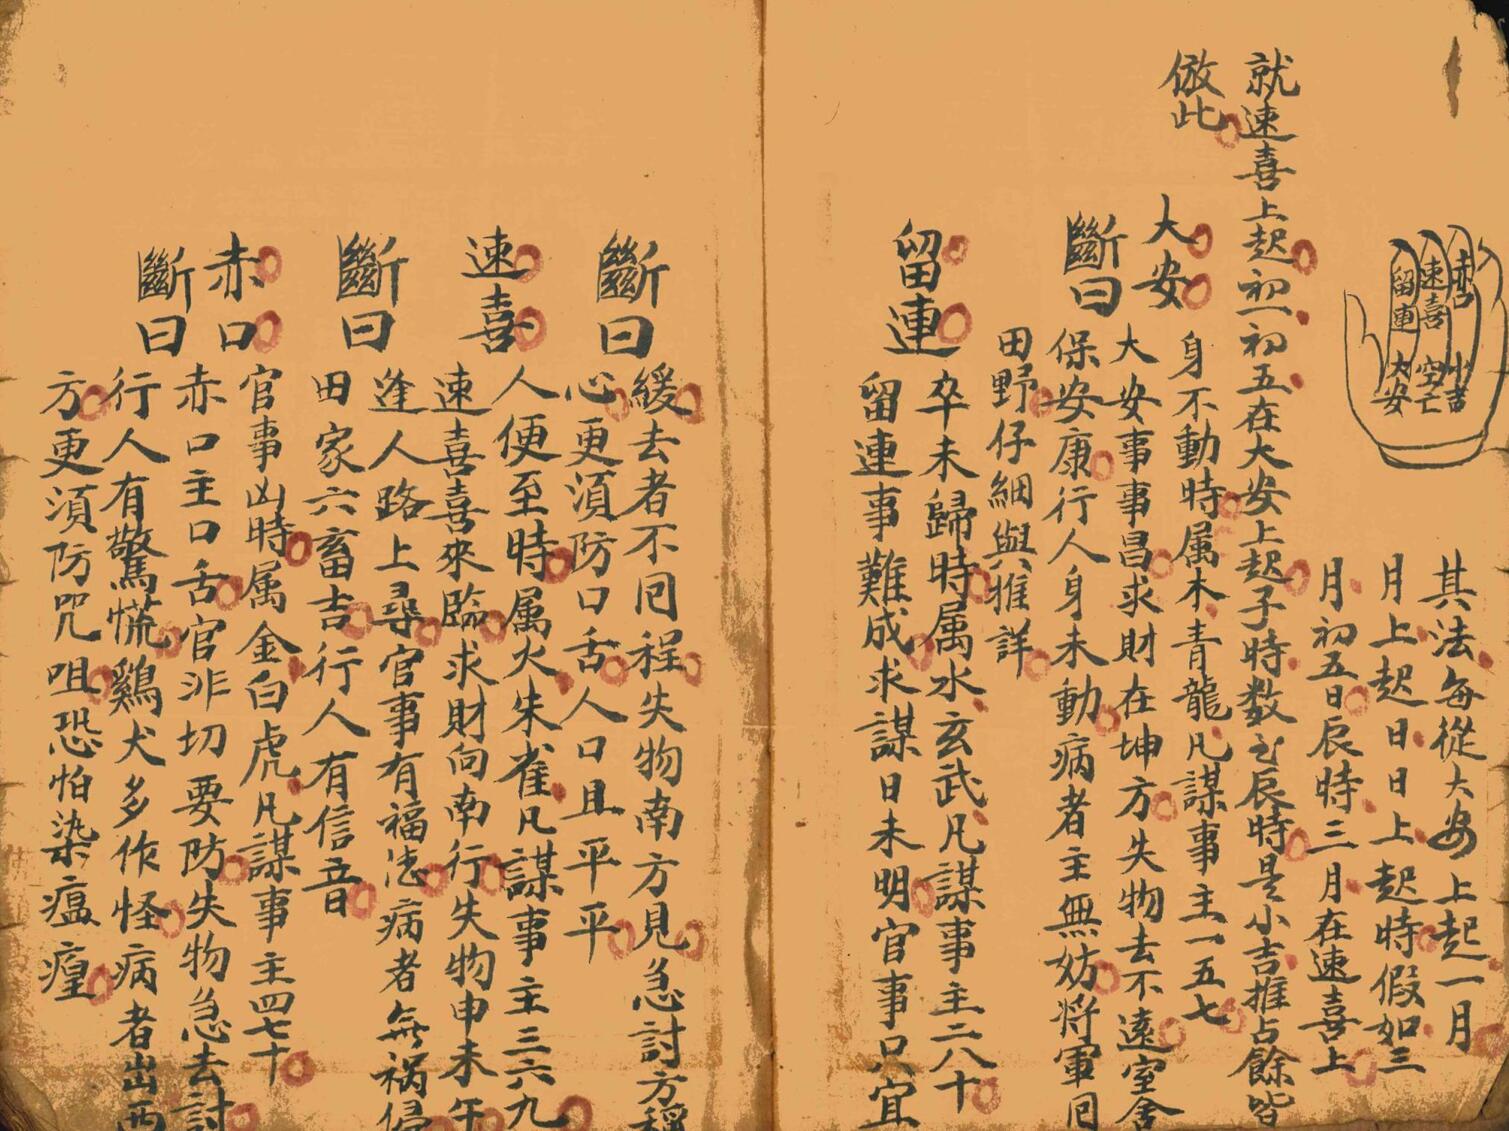 赤口
速喜
留連
小吉
空亡
大安
其法每從大安上起一月
月上起日日上起時假如三
月初五日辰時三月在速喜上
就速喜上起初一初五在大安上起子時数至辰時是小吉推占餘皆
倣此
大安
身不動時属木青龍凡謀事主一五七
斷曰
大安事事昌求財在坤方失物去不遠室舍
保安康行人身未動病者主無妨將軍囘
田野仔細與推詳
留連
卒未歸時属水玄武凡謀事主二八十
留連事難成求謀日未明官事只宜
斷曰
緩去者不囘程失物南方見急討方稱
心更須防口舌人口且平平
速喜
人便至時属火朱雀凡謀事主三六九
速喜喜來臨求財向南行失物申未午
斷曰
逢人路上尋官事有福德病者無禍侵
田家六畜吉行人有信音
赤口
官事凶時属金白虎凡謀事主四七十
赤口主口舌官非切要防失物急去討
斷曰
行人有驚慌鷄犬多作怪病者出西
方更須防咒咀恐怕染瘟瘟